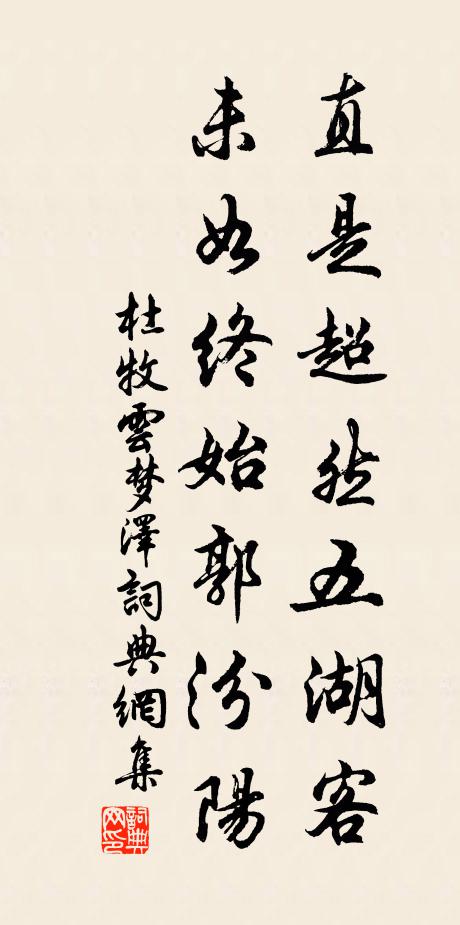 直是超然五湖客
未如終始郭汾陽
杜牧雲梦澤詞典網集
詞典網印